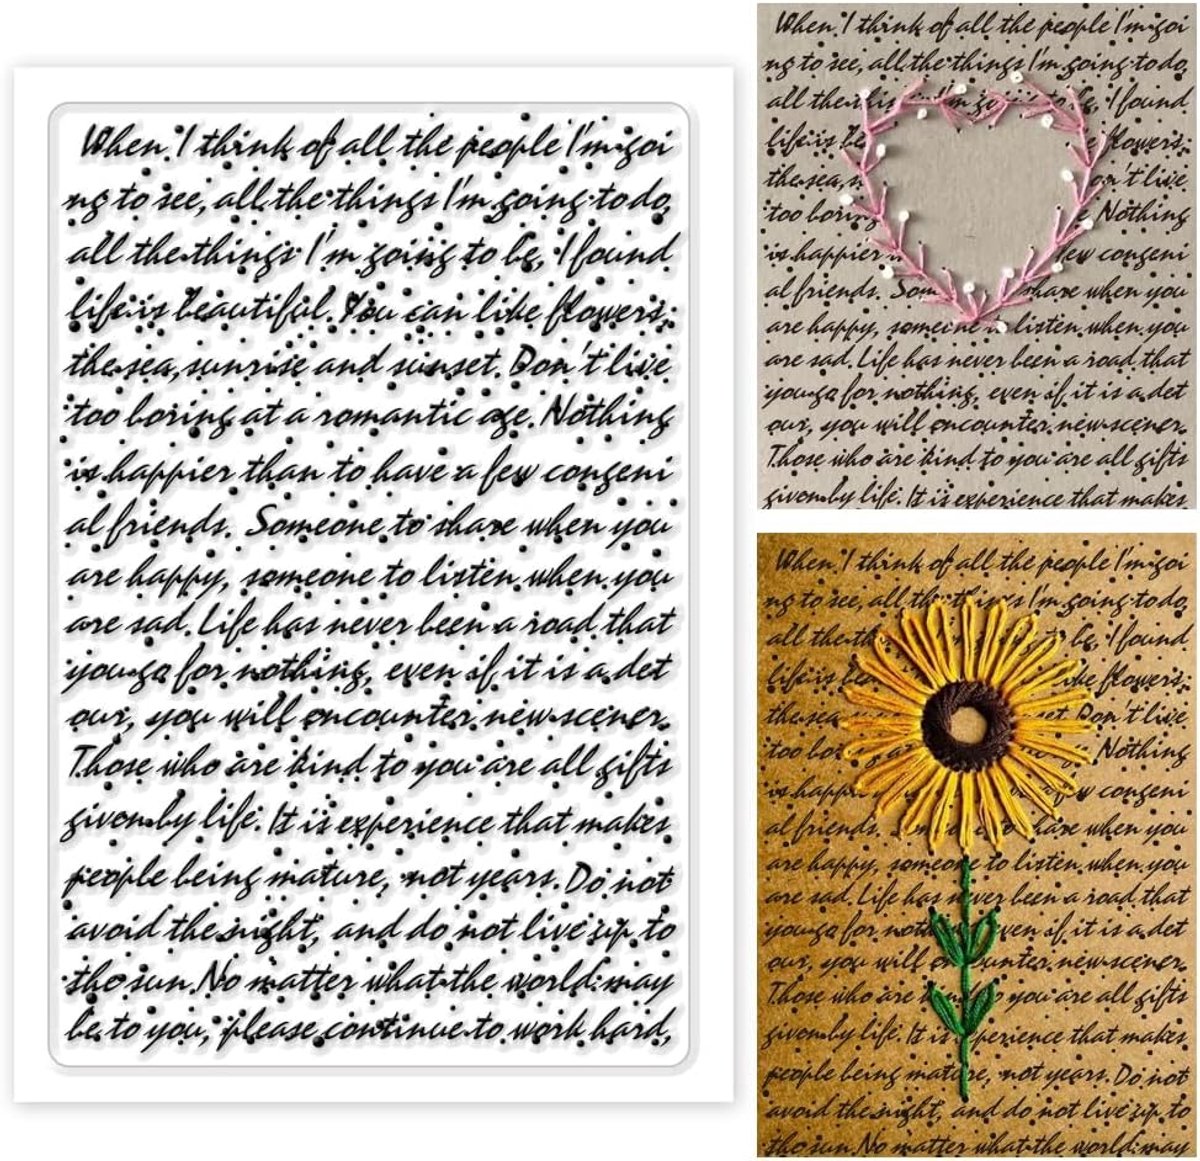 When I think of all the people I'm goi
ng to see, all the things I'm going to do,
all the things I'm going to be, I found
life is beautiful. You can like flowers,
the sea, sunrise and sunset. Don't live
too boring at a romantic age. Nothing
is happier than to have a few congeni
al friends. Someone to share when you
are happy, someone to listen when you
are sad. Life has never been a road that
you go for nothing, even if it is a det
our, you will encounter new scener.
Those who are kind to you are all gifts
given by life. It is experience that makes
people being mature, not years. Do not
avoid the night, and do not live up to
the sun. No matter what the world may
be to you, please continue to work hard,
When I think of all the people I'm goi
ng to see, all the things I'm going to do,
all the this I'm going to be, I found
life is be flowers,
the sea, s on't live
too boring Nothing
is happier few congeni
al friends. Som share when you
are happy, someone to listen when you
are sad. Life has never been a road that
you go for nothing, even if it is a det
our, you will encounter new scener.
Those who are kind to you are all gifts
given by life. It is experience that makes
When I think of all the people I'm goi
ng to see, all the things I'm going to do,
all the th be, I found
life is bea like flowers,
the sea set. Don't live
too bor Nothing
is happi few congeni
al friends. share when you
are happy, someone to listen when you
are sad. Life has never been a road that
you go for noth even if it is a det
our, you will encounter new scener.
Those who are kind to you are all gifts
given by life. It is experience that makes
people being mature, not years. Do not
avoid the night, and do not live up to
the sun. No matter what the world may